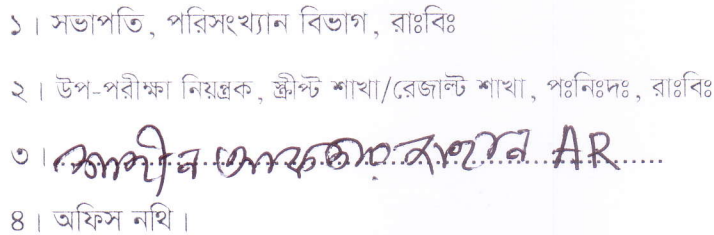 ১। সভাপতি, পরিসংখ্যান বিভাগ, রাঃবিঃ
২। উপ-পরীক্ষা নিয়ন্ত্রক, স্ক্রীপ্ট শাখা/রেজাল্ট শাখা, পঃনিঃদঃ, রাঃবিঃ
৩। শাহীন AR
৪। অফিস নথি।